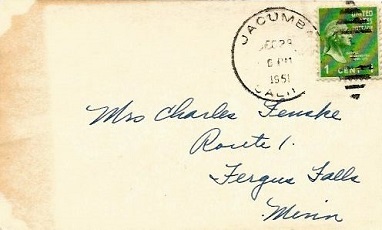 JACUMBA
DEC 28
6 PM
1951
CALIF
UNITED
STATES
1 CENT
Mrs Charles Fenske
Route 1.
Fergus Falls
Minn